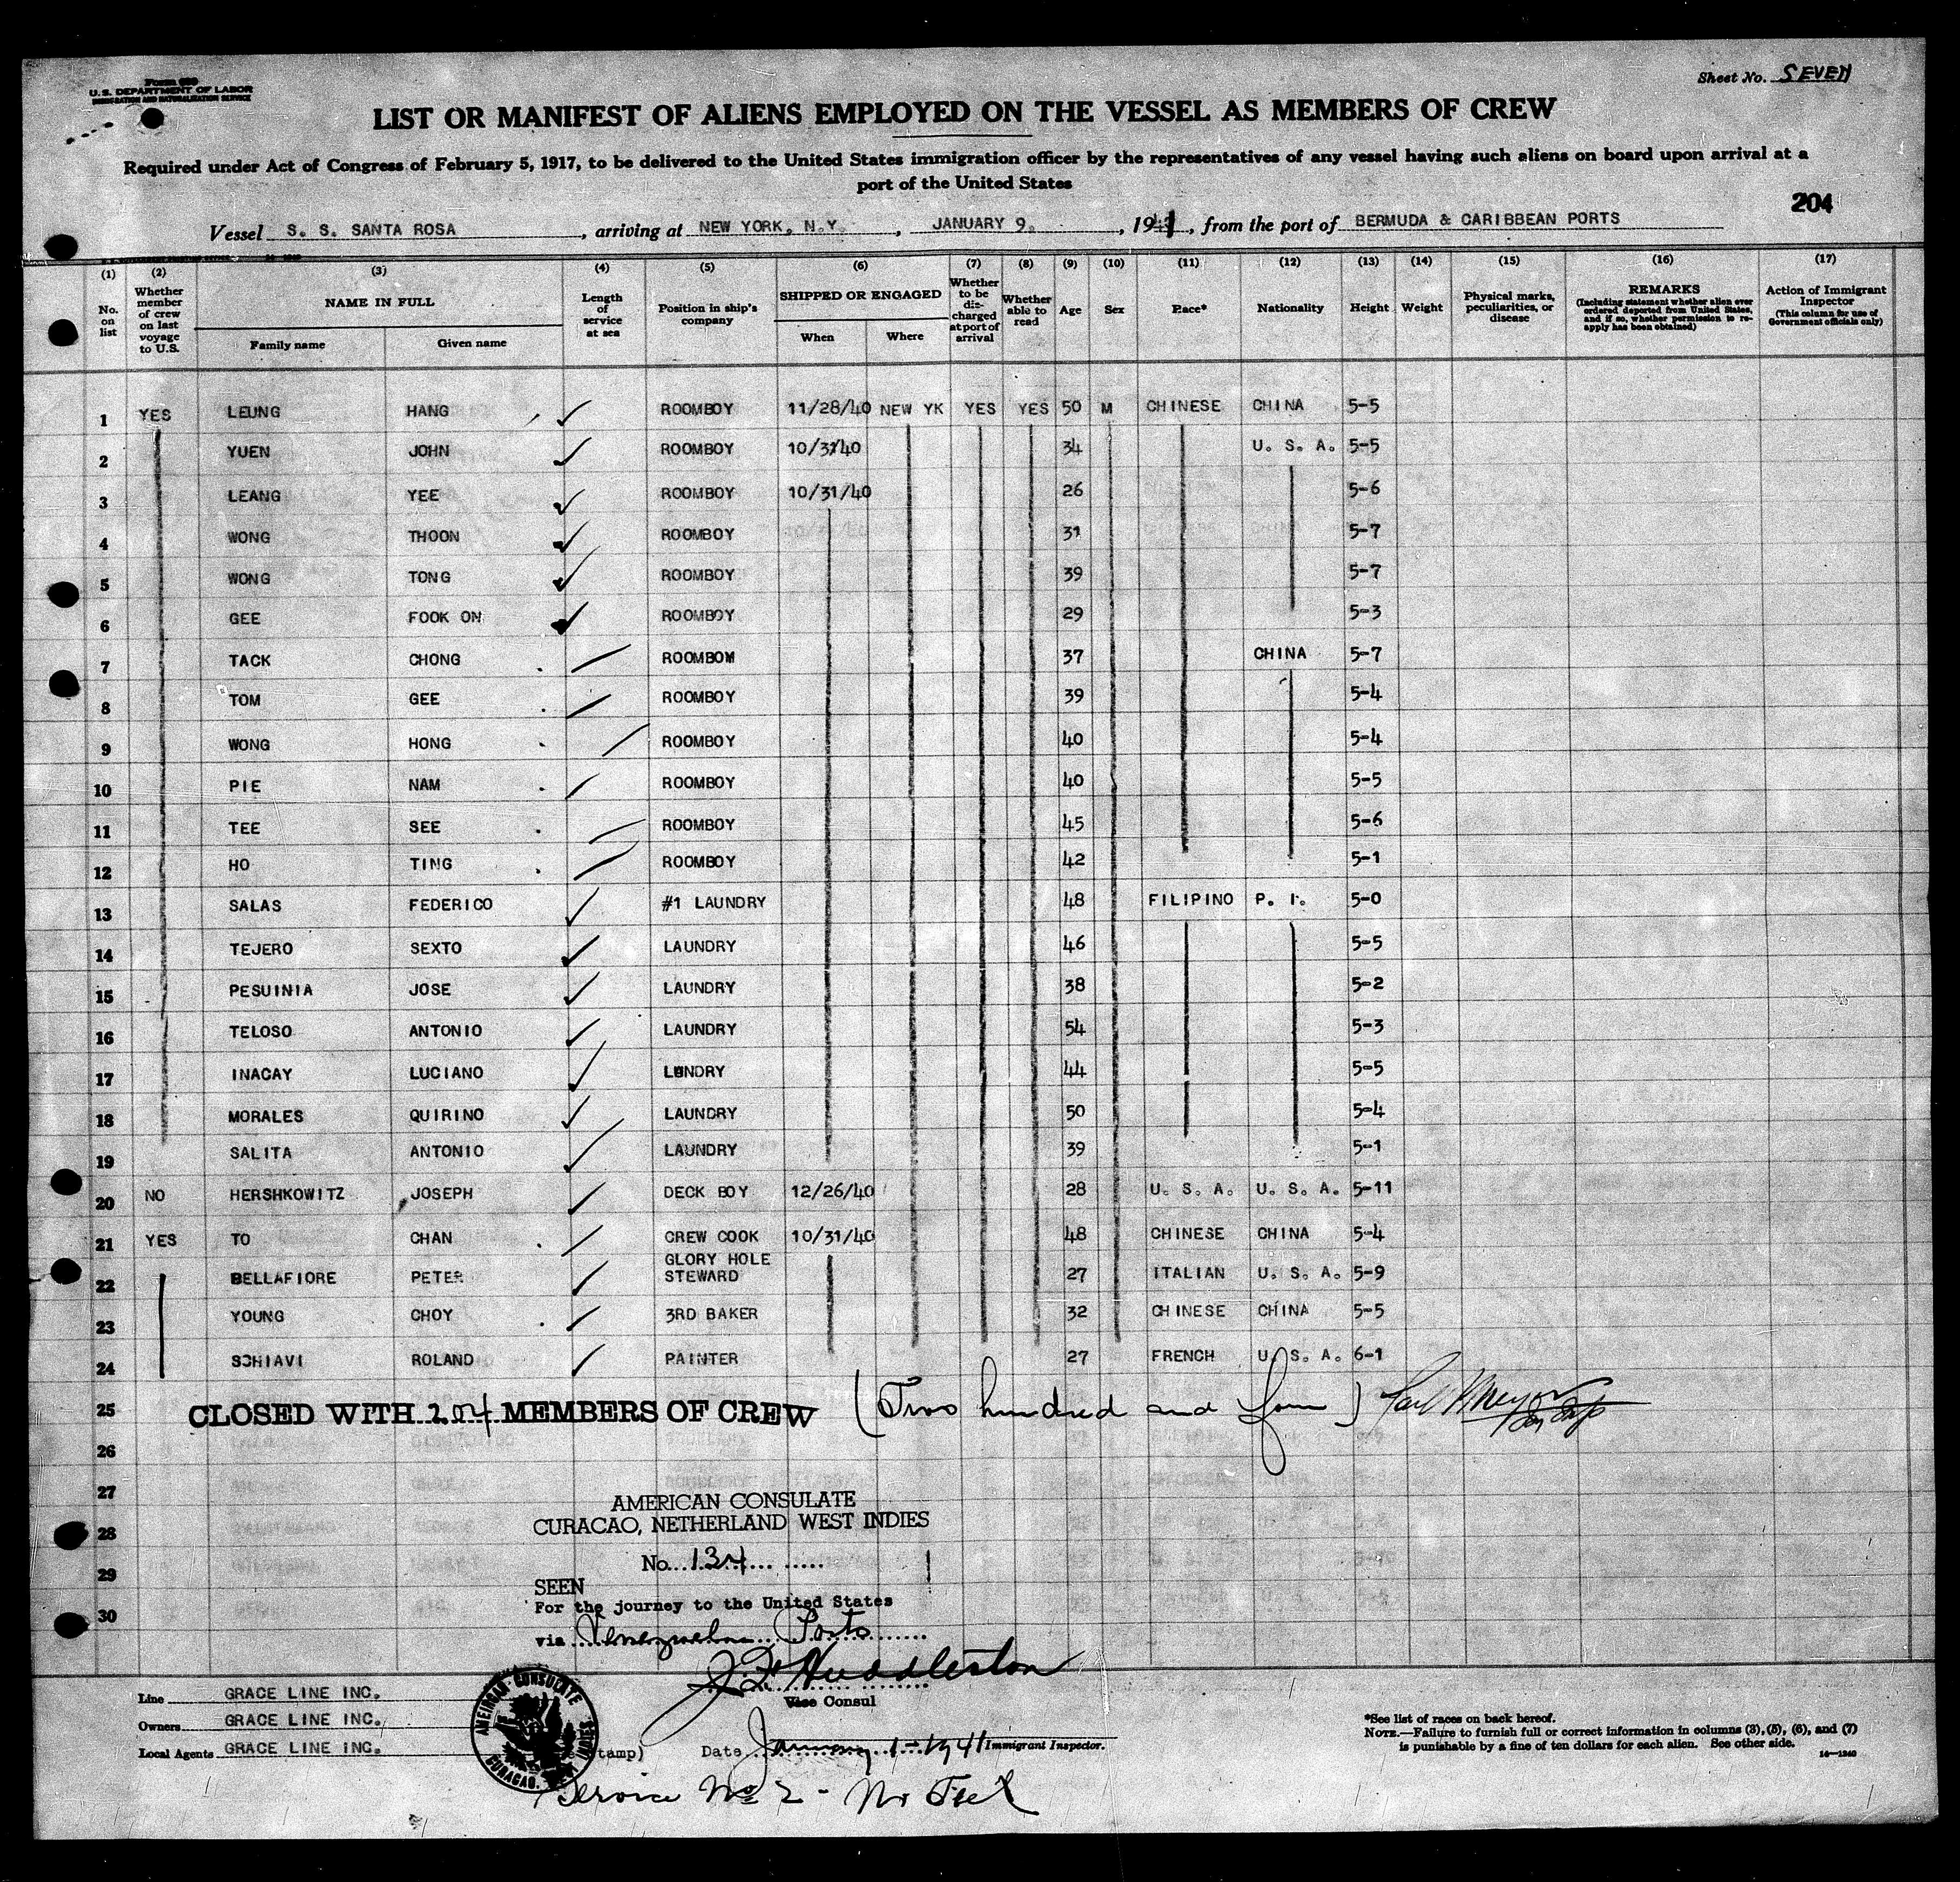 Form 680
U. S. DEPARTMENT OF LABOR
IMMIGRATION AND NATURALIZATION SERVICE
Sheet No. SEVEN
LIST OR MANIFEST OF ALIENS EMPLOYED ON THE VESSEL AS MEMBERS OF CREW
Required under Act of Congress of February 5, 1917, to be delivered to the United States immigration officer by the representatives of any vessel having such aliens on board upon arrival at a
port of the United States
204
Vessel S. S. SANTA ROSA, arriving at NEW YORK, N.Y., JANUARY 9, 1941, from the port of BERMUDA & CARIBBEAN PORTS
(1) (2) (3) (4) (5) (6) (7) (8) (9) (10) (11) (12) (13) (14) (15) (16) (17)
No. on list
Whether member of crew on last voyage to U.S.
NAME IN FULL
Family name
Given name
Length of service at sea
Position in ship's company
SHIPPED OR ENGAGED
When
Where
Whether to be discharged at port of arrival
Whether able to read
Age
Sex
Race*
Nationality
Height
Weight
Physical marks, peculiarities, or disease
REMARKS
(Including statement whether alien ever ordered deported from United States, and if so, whether permission to reapply has been obtained)
Action of Immigrant Inspector
(This column for use of Government officials only)
1 YES LEUNG HANG ROOMBOY 11/28/40 NEW YK YES YES 50 M CHINESE CHINA 5-5
2 YUEN JOHN ROOMBOY 10/31/40 34 U. S. A. 5-5
3 LEANG YEE ROOMBOY 10/31/40 26 5-6
4 WONG THOON ROOMBOY 31 5-7
5 WONG TONG ROOMBOY 39 5-7
6 GEE FOOK ON ROOMBOY 29 5-3
7 TACK CHONG ROOMBOM 37 CHINA 5-7
8 TOM GEE ROOMBOY 39 5-4
9 WONG HONG ROOMBOY 40 5-4
10 PIE NAM ROOMBOY 40 5-5
11 TEE SEE ROOMBOY 45 5-6
12 HO TING ROOMBOY 42 5-1
13 SALAS FEDERICO #1 LAUNDRY 48 FILIPINO P. I. 5-0
14 TEJERO SEXTO LAUNDRY 46 5-5
15 PESUINIA JOSE LAUNDRY 38 5-2
16 TELOSO ANTONIO LAUNDRY 54 5-3
17 INACAY LUCIANO LUNDRY 44 5-5
18 MORALES QUIRINO LAUNDRY 50 5-4
19 SALITA ANTONIO LAUNDRY 39 5-1
20 NO HERSHKOWITZ JOSEPH DECK BOY 12/26/40 28 U. S. A. U. S. A. 5-11
21 YES TO CHAN CREW COOK 10/31/40 48 CHINESE CHINA 5-4
22 BELLAFIORE PETER GLORY HOLE STEWARD 27 ITALIAN U. S. A. 5-9
23 YOUNG CHOY 3RD BAKER 32 CHINESE CHINA 5-5
24 SCHIAVI ROLAND PAINTER 27 FRENCH U. S. A. 6-1
25 CLOSED WITH 204 MEMBERS OF CREW (Two hundred and four)
26
27
28
29
30
AMERICAN CONSULATE
CURACAO, NETHERLAND WEST INDIES
No. 134
SEEN
For the journey to the United States
via Venezuelan Ports
J. F. Huddleston
Vice Consul
Line GRACE LINE INC.
Owners GRACE LINE INC.
Local Agents GRACE LINE INC.
AMERICAN CONSULATE
CURACAO,
Date January 1-1941
Immigrant Inspector.
Service No 2 - No Fee
*See list of races on back hereof.
NOTE.—Failure to furnish full or correct information in columns (3), (5), (6), and (7)
is punishable by a fine of ten dollars for each alien. See other side.
14—1240